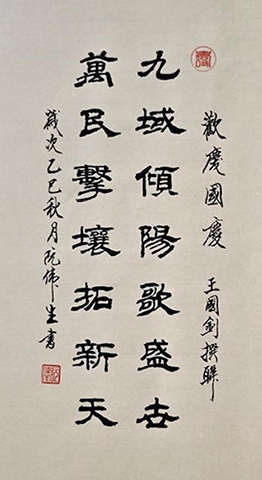 歡慶國慶 王國釗撰聯
九域傾陽歌盛世
萬民擊壤拓新天
歲次乙巳秋月阮偉生書